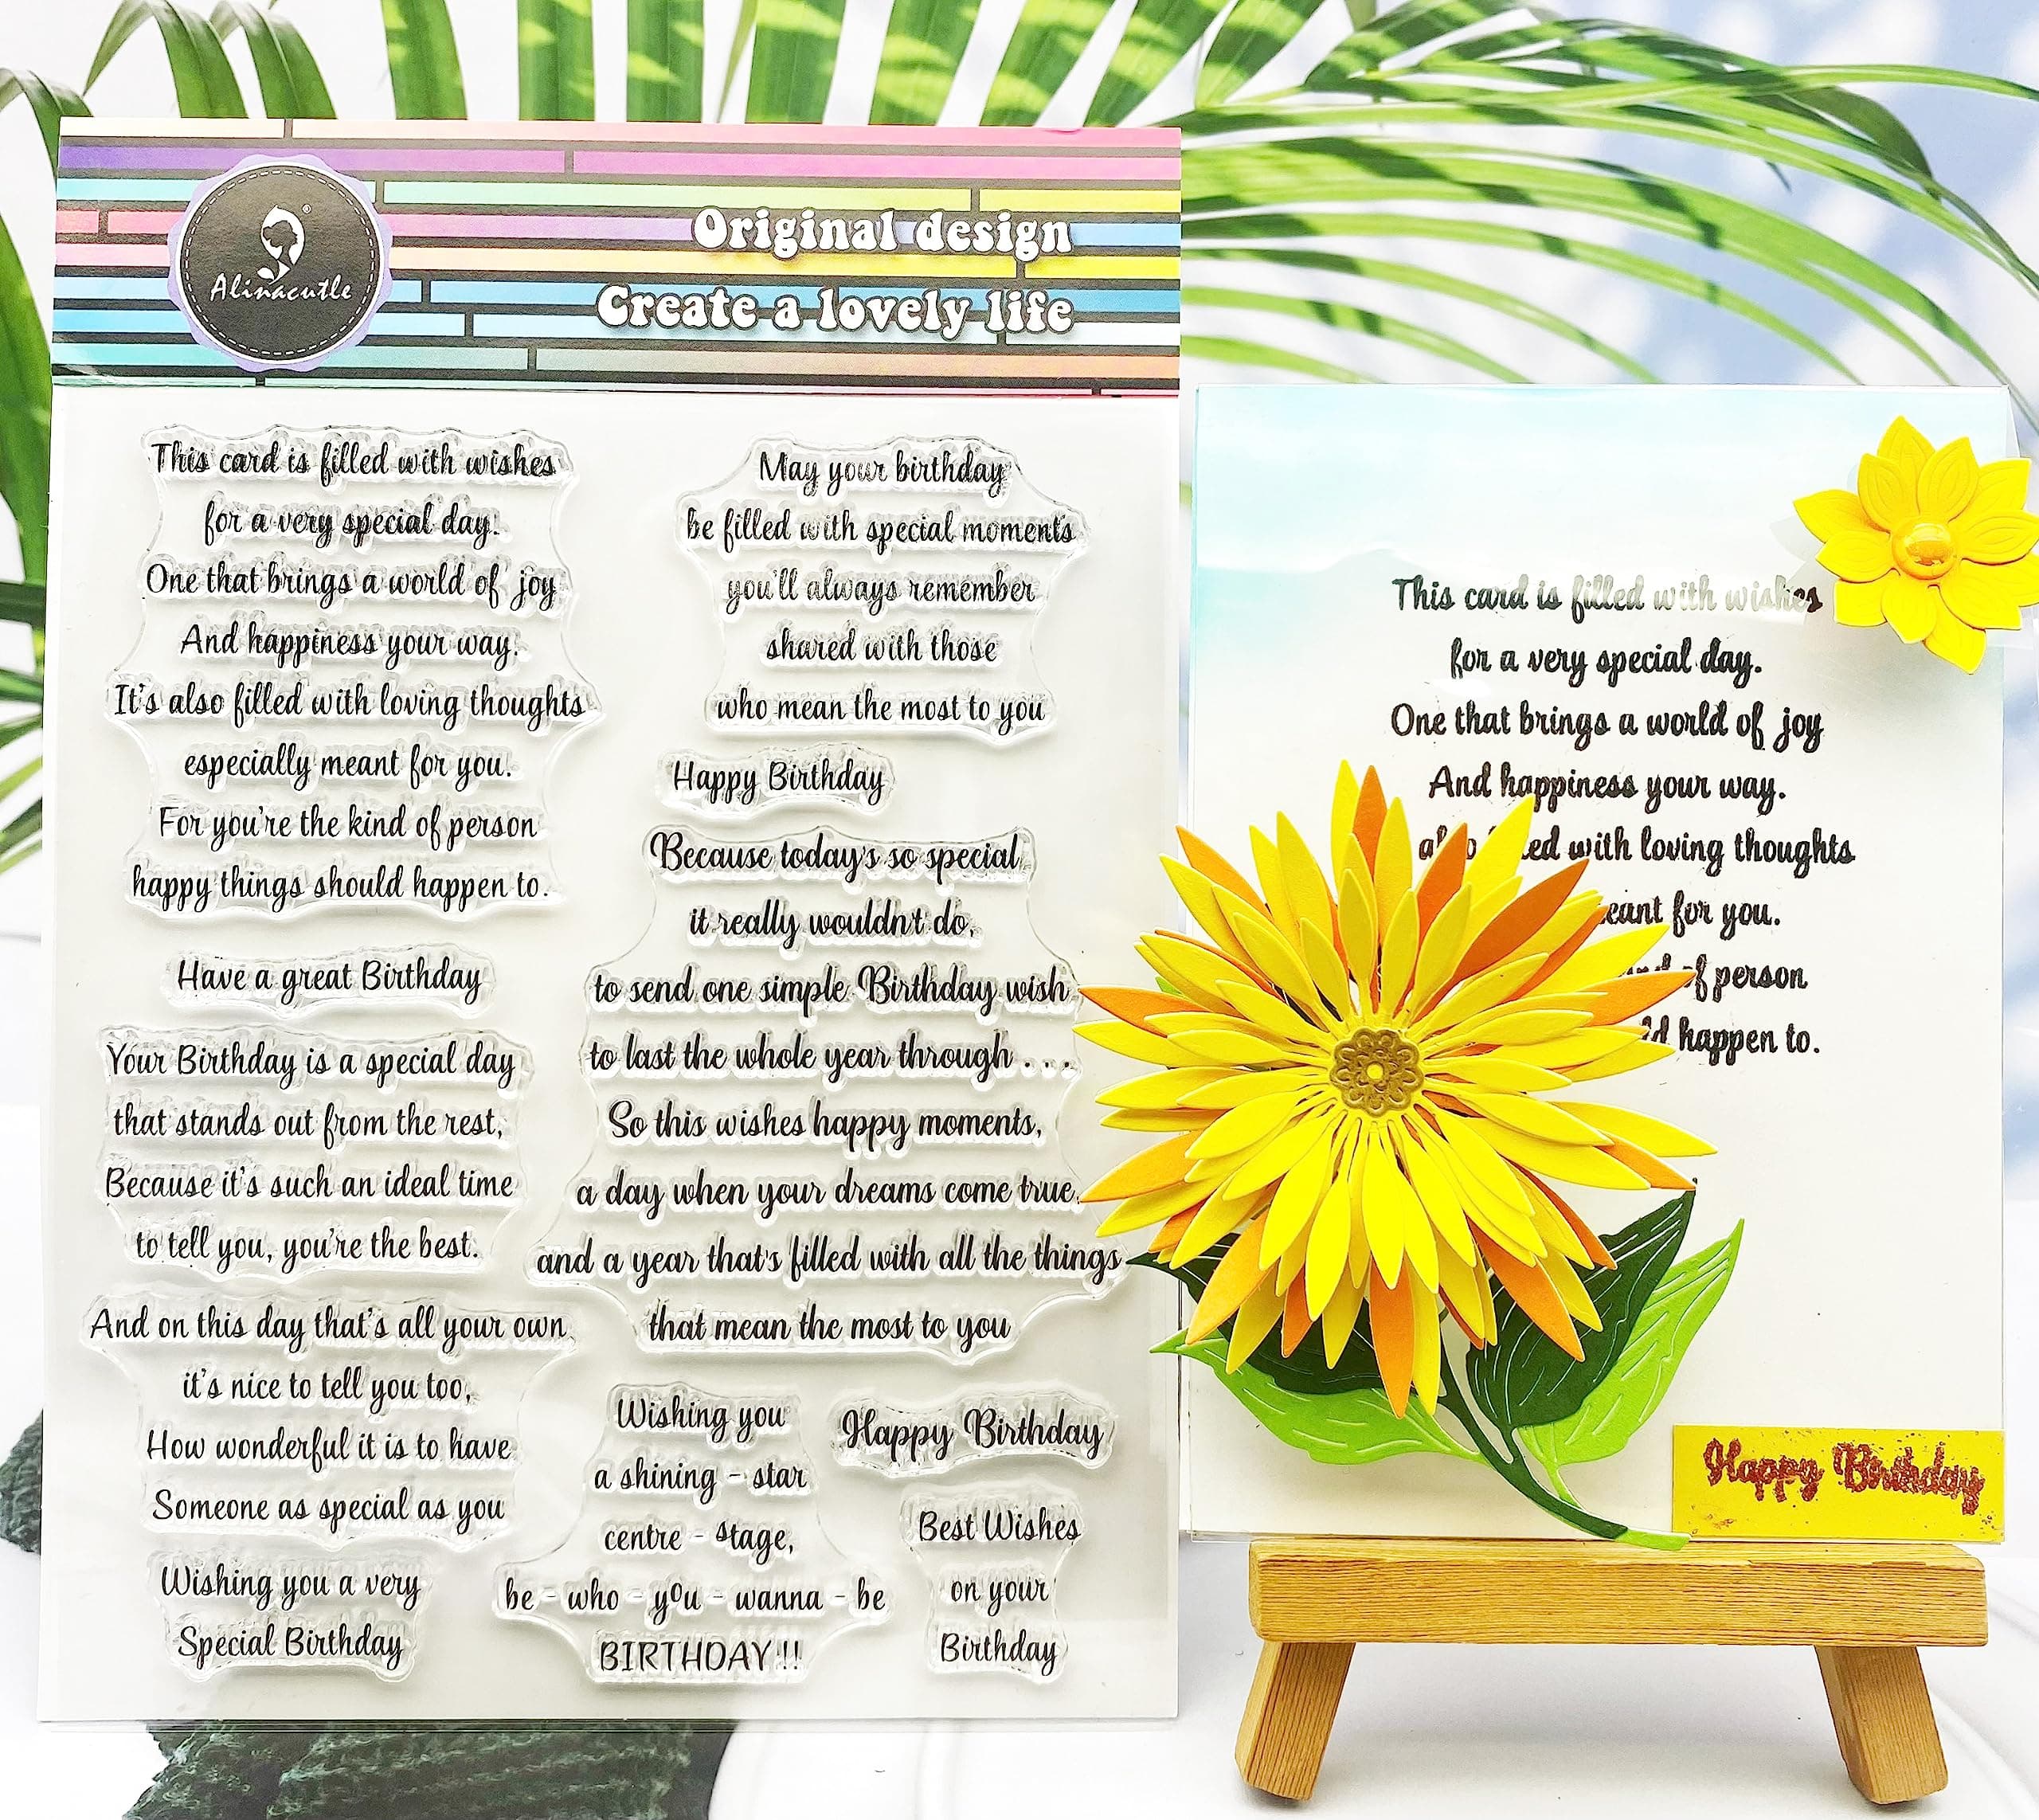 Alinacutle
Original design
Create a lovely life
This card is filled with wishes
for a very special day.
One that brings a world of joy
And happiness your way.
It's also filled with loving thoughts
especially meant for you.
For you're the kind of person
happy things should happen to.
Have a great Birthday
Your Birthday is a special day
that stands out from the rest,
Because it's such an ideal time
to tell you, you're the best.
And on this day that's all your own,
it's nice to tell you too,
How wonderful it is to have
Someone as special as you
Wishing you a very
Special Birthday
May your birthday
be filled with special moments
you'll always remember
shared with those
who mean the most to you
Happy Birthday
Because today's so special
it really wouldn't do,
to send one simple Birthday wish
to last the whole year through . . .
So this wishes happy moments,
a day when your dreams come true,
and a year that's filled with all the things
that mean the most to you
Wishing you
a shining - star
centre - stage,
be - who - you - wanna - be
BIRTHDAY !!
Happy Birthday
Best Wishes
on your
Birthday
This card is filled with wishes
for a very special day.
One that brings a world of joy
And happiness your way.
with loving thoughts
for you.
of person
happen to.
Happy Birthday